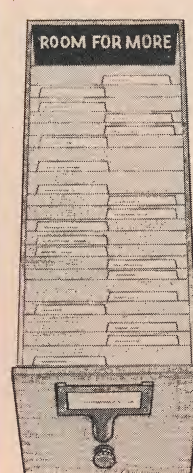 ROOM FOR MORE